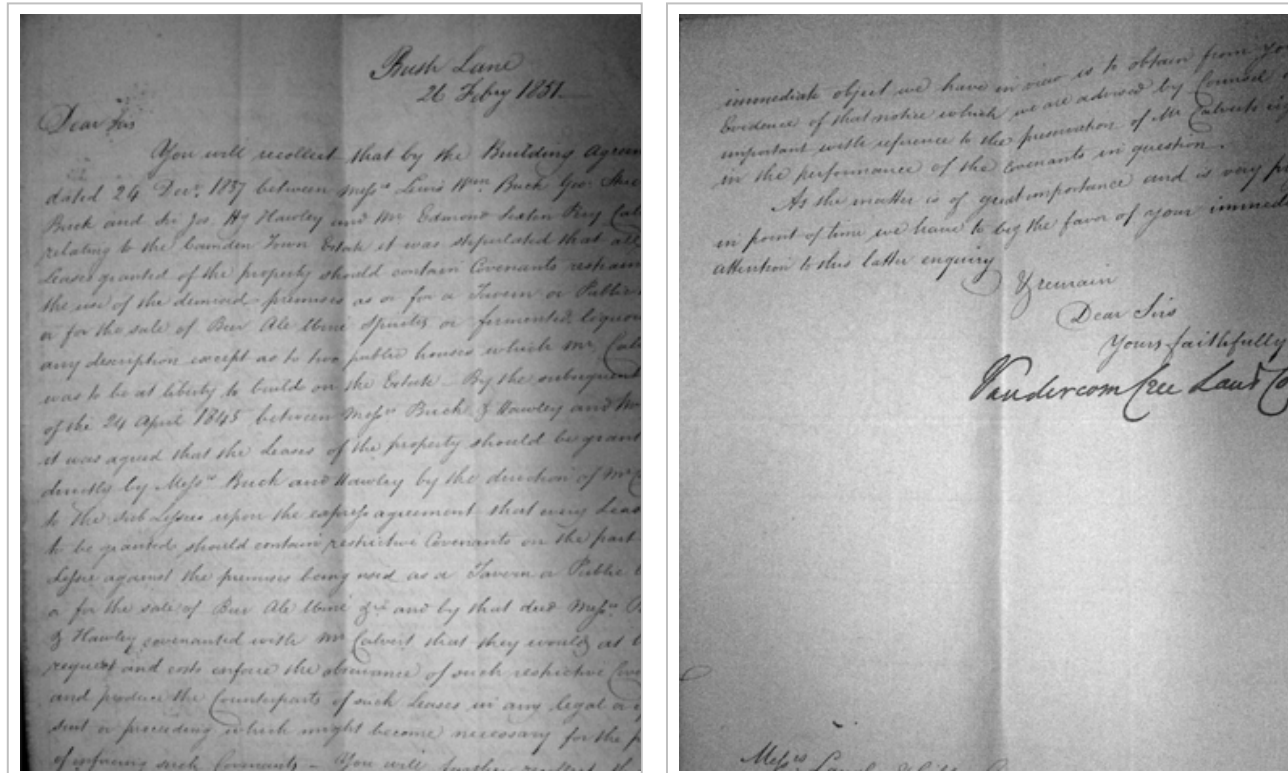 Bush Lane
26 Febry 1851
Dear Sirs
You will recollect that by the Building Agreem
dated 24 Decr. 1837 between Messrs Lewis Wm. Buck Geo.
Buck and Sir Jos. Hy Hawley and Mr Edmond Sexten Pery Cal
relating to the Camden Town Estate it was stipulated that all
Leases granted of the property should contain Covenants restrain
the use of the demised premises as or for a Tavern or Public
or for the sale of Beer Ale Wine Spirits or fermented liquor
any description except as to two public houses which Mr. Cal
was to be at liberty to build on the Estate – By the subsequent
of the 24 April 1845 between Messrs Buck & Hawley and Mr
it was agreed that the Leases of the property should be grant
directly by Messrs Buck and Hawley by the direction of Mr C
to the Sub Lessees upon the express agreement that every Leas
to be granted should contain restrictive Covenants on the part
Lessee against the premises being used as a Tavern or Public
or for the sale of Beer Ale Wine &c and by that deed Messrs
& Hawley covenanted with Mr Calvert that they would at
request and costs enforce the observance of such restrictive Cove
and produce the Counterparts of such Leases in any legal
suit or proceeding which might become necessary for the p
of enforcing such Covenants – You will further recollect th
immediate object we have in view is to obtain from yo
Evidence of that notice which we are advised by Counsel
important with reference to the preservation of Mr Calverts
in the performance of the Covenants in question.
As the matter is of great importance and is very pr
in point of time we have to beg the favor of your immedi
attention to this latter enquiry
We remain
Dear Sirs
Yours faithfully
Vandercom Cree Law & Co
Messrs